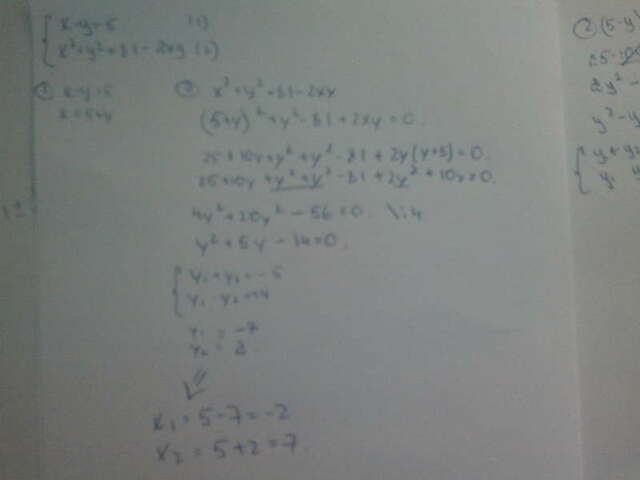 x - y = 5 (1)
x² + y² = 81 - 2xy (2)
① x - y = 5
x = 5 + y
② x² + y² = 81 - 2xy
(5+y)² + y² - 81 + 2xy = 0.
25 + 10y + y² + y² - 81 + 2y(y+5) = 0.
25 + 10y + y² + y² - 81 + 2y² + 10y = 0.
4y² + 20y - 56 = 0. \:4
y² + 5y - 14 = 0.
y₁ + y₂ = -5
y₁ · y₂ = -14
y₁ = -7
y₂ = 2
x₁ = 5 - 7 = -2
x₂ = 5 + 2 = 7.
② (5-y)
2y² -
y² - y
y₁ + y₂